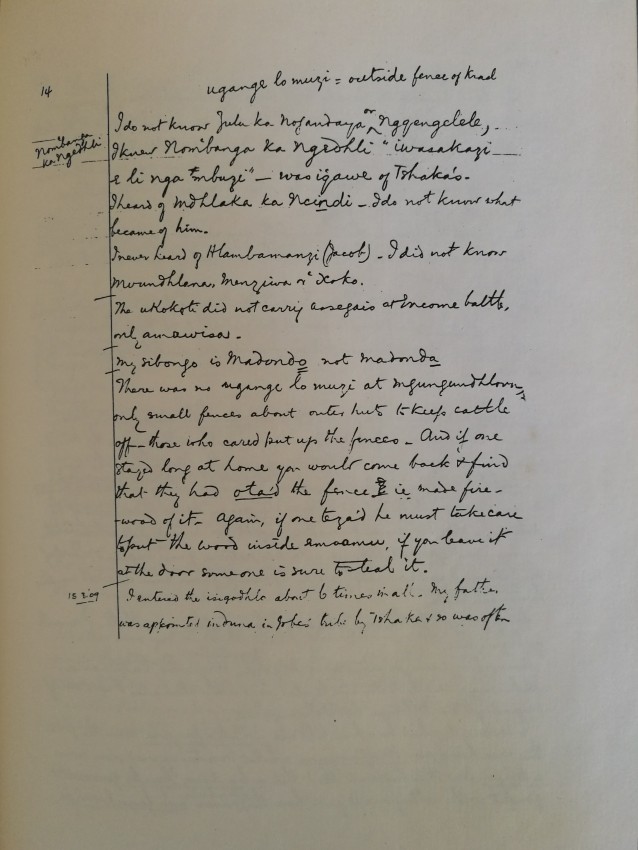 14
ugange lo muzi = outside fence of kraal
I do not know Zulu ka Nogandaya or Nggengelele,
Nombanga ka Ngedhli
I knew Nombanga ka Ngedhli "iwasakazi
e li nga "mbuzi" - was igawe of Tshaka's.
I heard of Mdhlaka ka Ncindi - I do not know what
became of him.
I never heard of Hlambamanzi (Jacob) - I did not know
Mvundhlana, Menziwa or Xoko.
The uKokoti did not carry assegais at Income battle,
only amawisa.
My sibongo is Madondo not Madonda
There was no ugange lo muzi at Mgungundhlovu,
only small fences about outer huts to keep cattle
off - those who cared put up the fences - And if one
stayed long at home you would come back & find
that they had ota'd the fence ie. made fire-
wood of it - Again, if one teza'd he must take care
to put the wood inside emsamu, if you leave it
at the door someone is sure to steal it.
15.2.09
I entered the isigodhlo about 6 times in all. My father
was appointed induna in Jobe's tribe by Tshaka & so was often